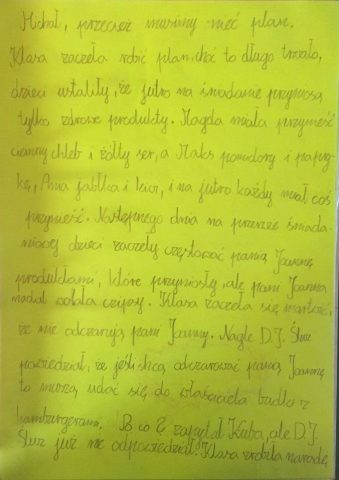 Michał, przecież musimy mieć plan.
Klasa zaczęła robić plan, choć to długo trwało,
dzieci ustaliły, że jutro na śniadanie przyniosą
tylko zdrowe produkty. Magda miała przynieść
ciemny chleb i żółty ser, a Maks pomidory i papry-
kę, Anna jabłka i kiwi, i na jutro każdy miał coś
przynieść. Następnego dnia na przerwie śniada-
niowej dzieci zaczęły częstować panią Joannę
produktami, które przyniosły, ale pani Joanna
nadal wolała czipsy. Klasa zaczęła się martwić,
że nie odczarują pani Joanny. Nagle D.J.
powiedział, że jeśli chcą odczarować panią Joannę
to muszą udać się do właściciela budki z
hamburgerami. B co? zapytał Kuba, ale D.J.
już nie odpowiedział. Klasa zrobiła naradę